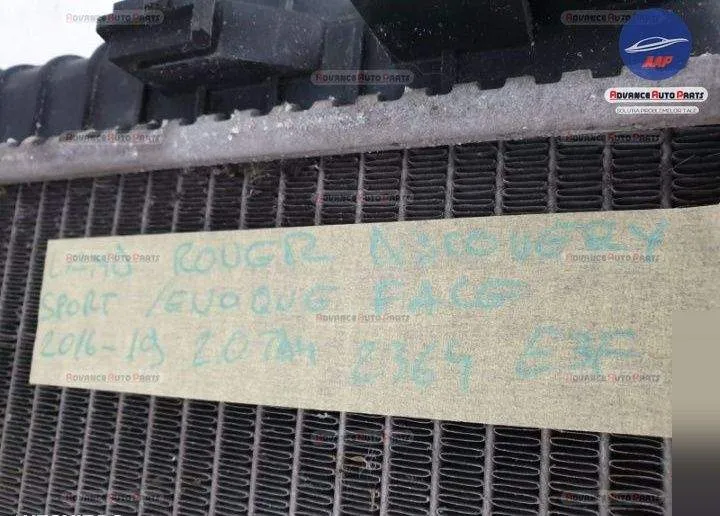 ADVANCE AUTO PARTS
AAP
ADVANCE AUTO PARTS
SOLUTIA PROBLEMELOR TALE
LAND ROVER DISCOVERY
SPORT /EVOQUE FACE
2016-19 2.0 2364 E3F